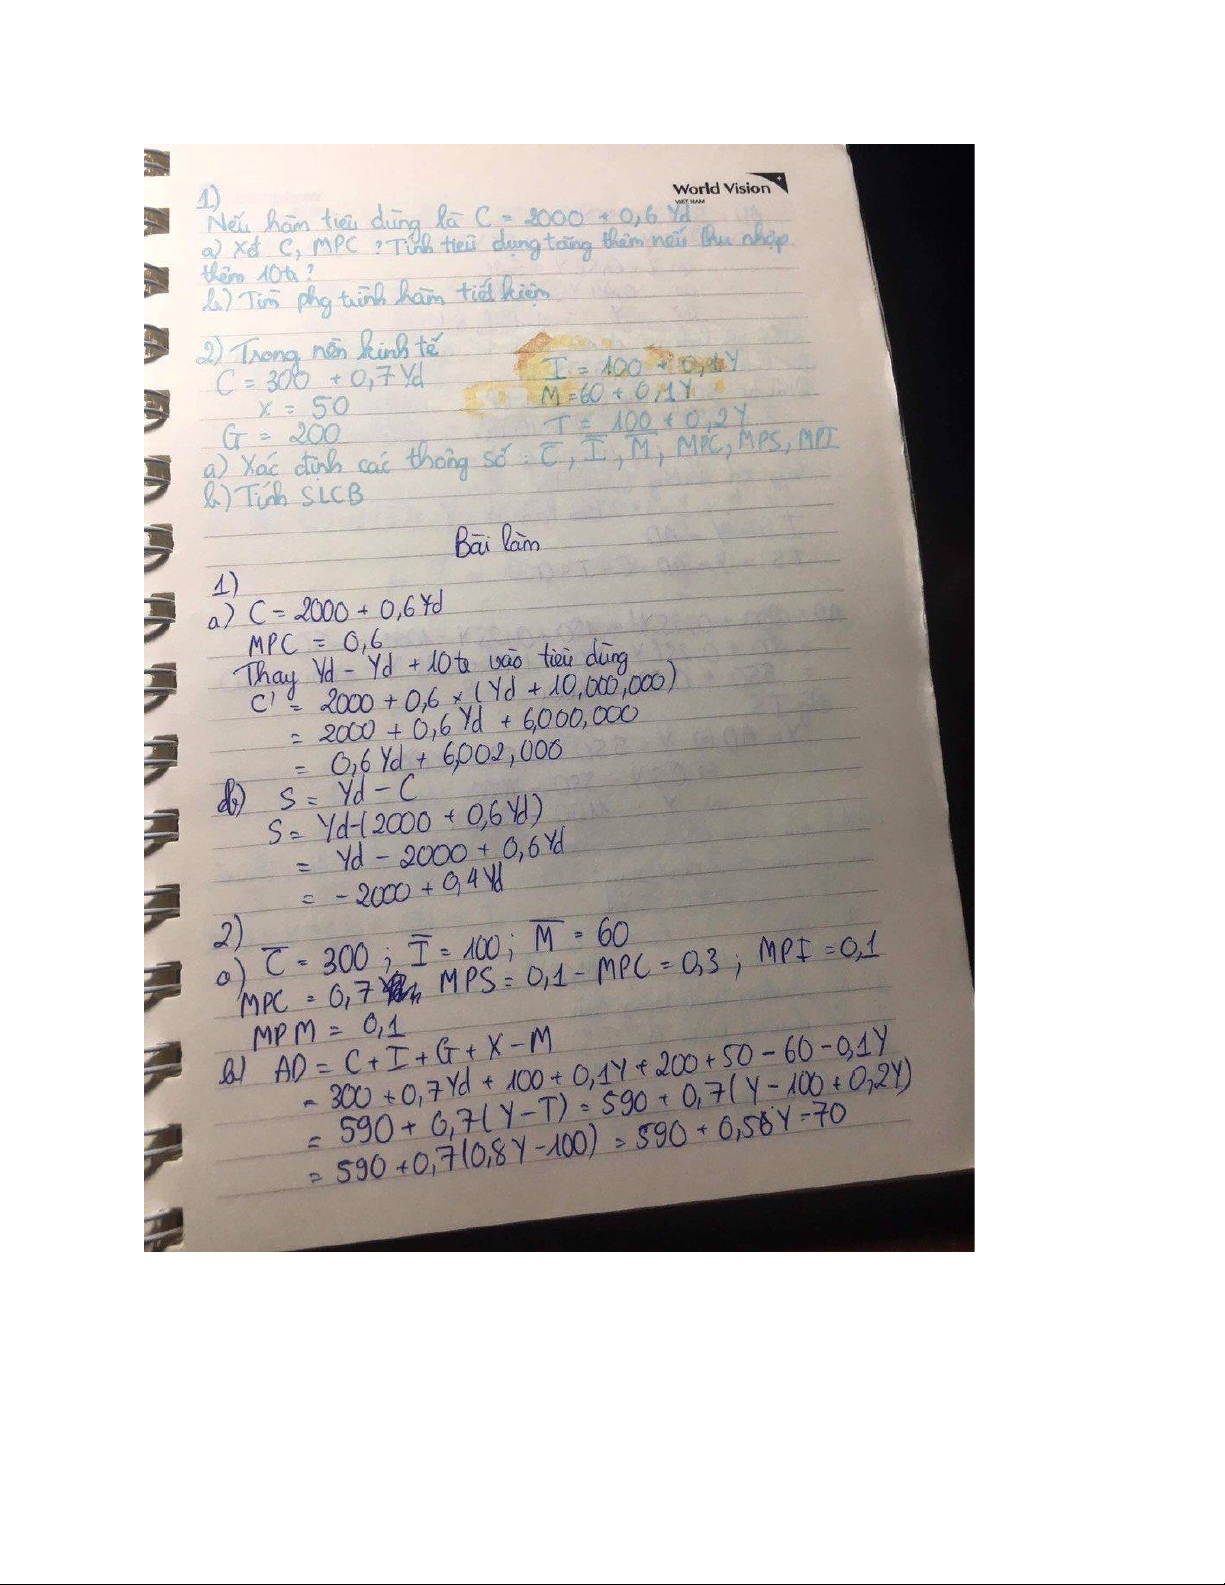 World Vision
VIỆT NAM
1)
Nếu hàm tiêu dùng là C = 2000 + 0,6 Yd
a) Xđ C, MPC ? Tính tiêu dụng tăng thêm nếu thu nhập
thêm 10tr ?
b) Tìm phg trình hàm tiết kiệm
2) Trong nền kinh tế
C = 300 + 0,7 Yd I = 100 + 0,1Y
X = 50 M = 60 + 0,1Y
G = 200 T = 100 + 0,2Y
a) Xác định các thông số : C̅, I̅, M̅, MPC, MPS, MPI
b) Tính SLCB
Bài làm
1)
a) C = 2000 + 0,6 Yd
MPC = 0,6
Thay Yd - Yd + 10tr vào tiêu dùng
C' = 2000 + 0,6 × (Yd + 10,000,000)
= 2000 + 0,6 Yd + 6,000,000
= 0,6 Yd + 6,002,000
b) S = Yd - C
S = Yd - (2000 + 0,6 Yd)
= Yd - 2000 + 0,6 Yd
= - 2000 + 0,4 Yd
2)
a) C̅ = 300 ; I̅ = 100 ; M̅ = 60
MPC = 0,7 MPS = 0,1 - MPC = 0,3 ; MPI = 0,1
MPM = 0,1
b) AD = C + I + G + X - M
= 300 + 0,7 Yd + 100 + 0,1Y + 200 + 50 - 60 - 0,1Y
= 590 + 0,7 ( Y - T ) = 590 + 0,7 ( Y - 100 + 0,2Y)
= 590 + 0,7 (0,8Y - 100) = 590 + 0,56Y - 70